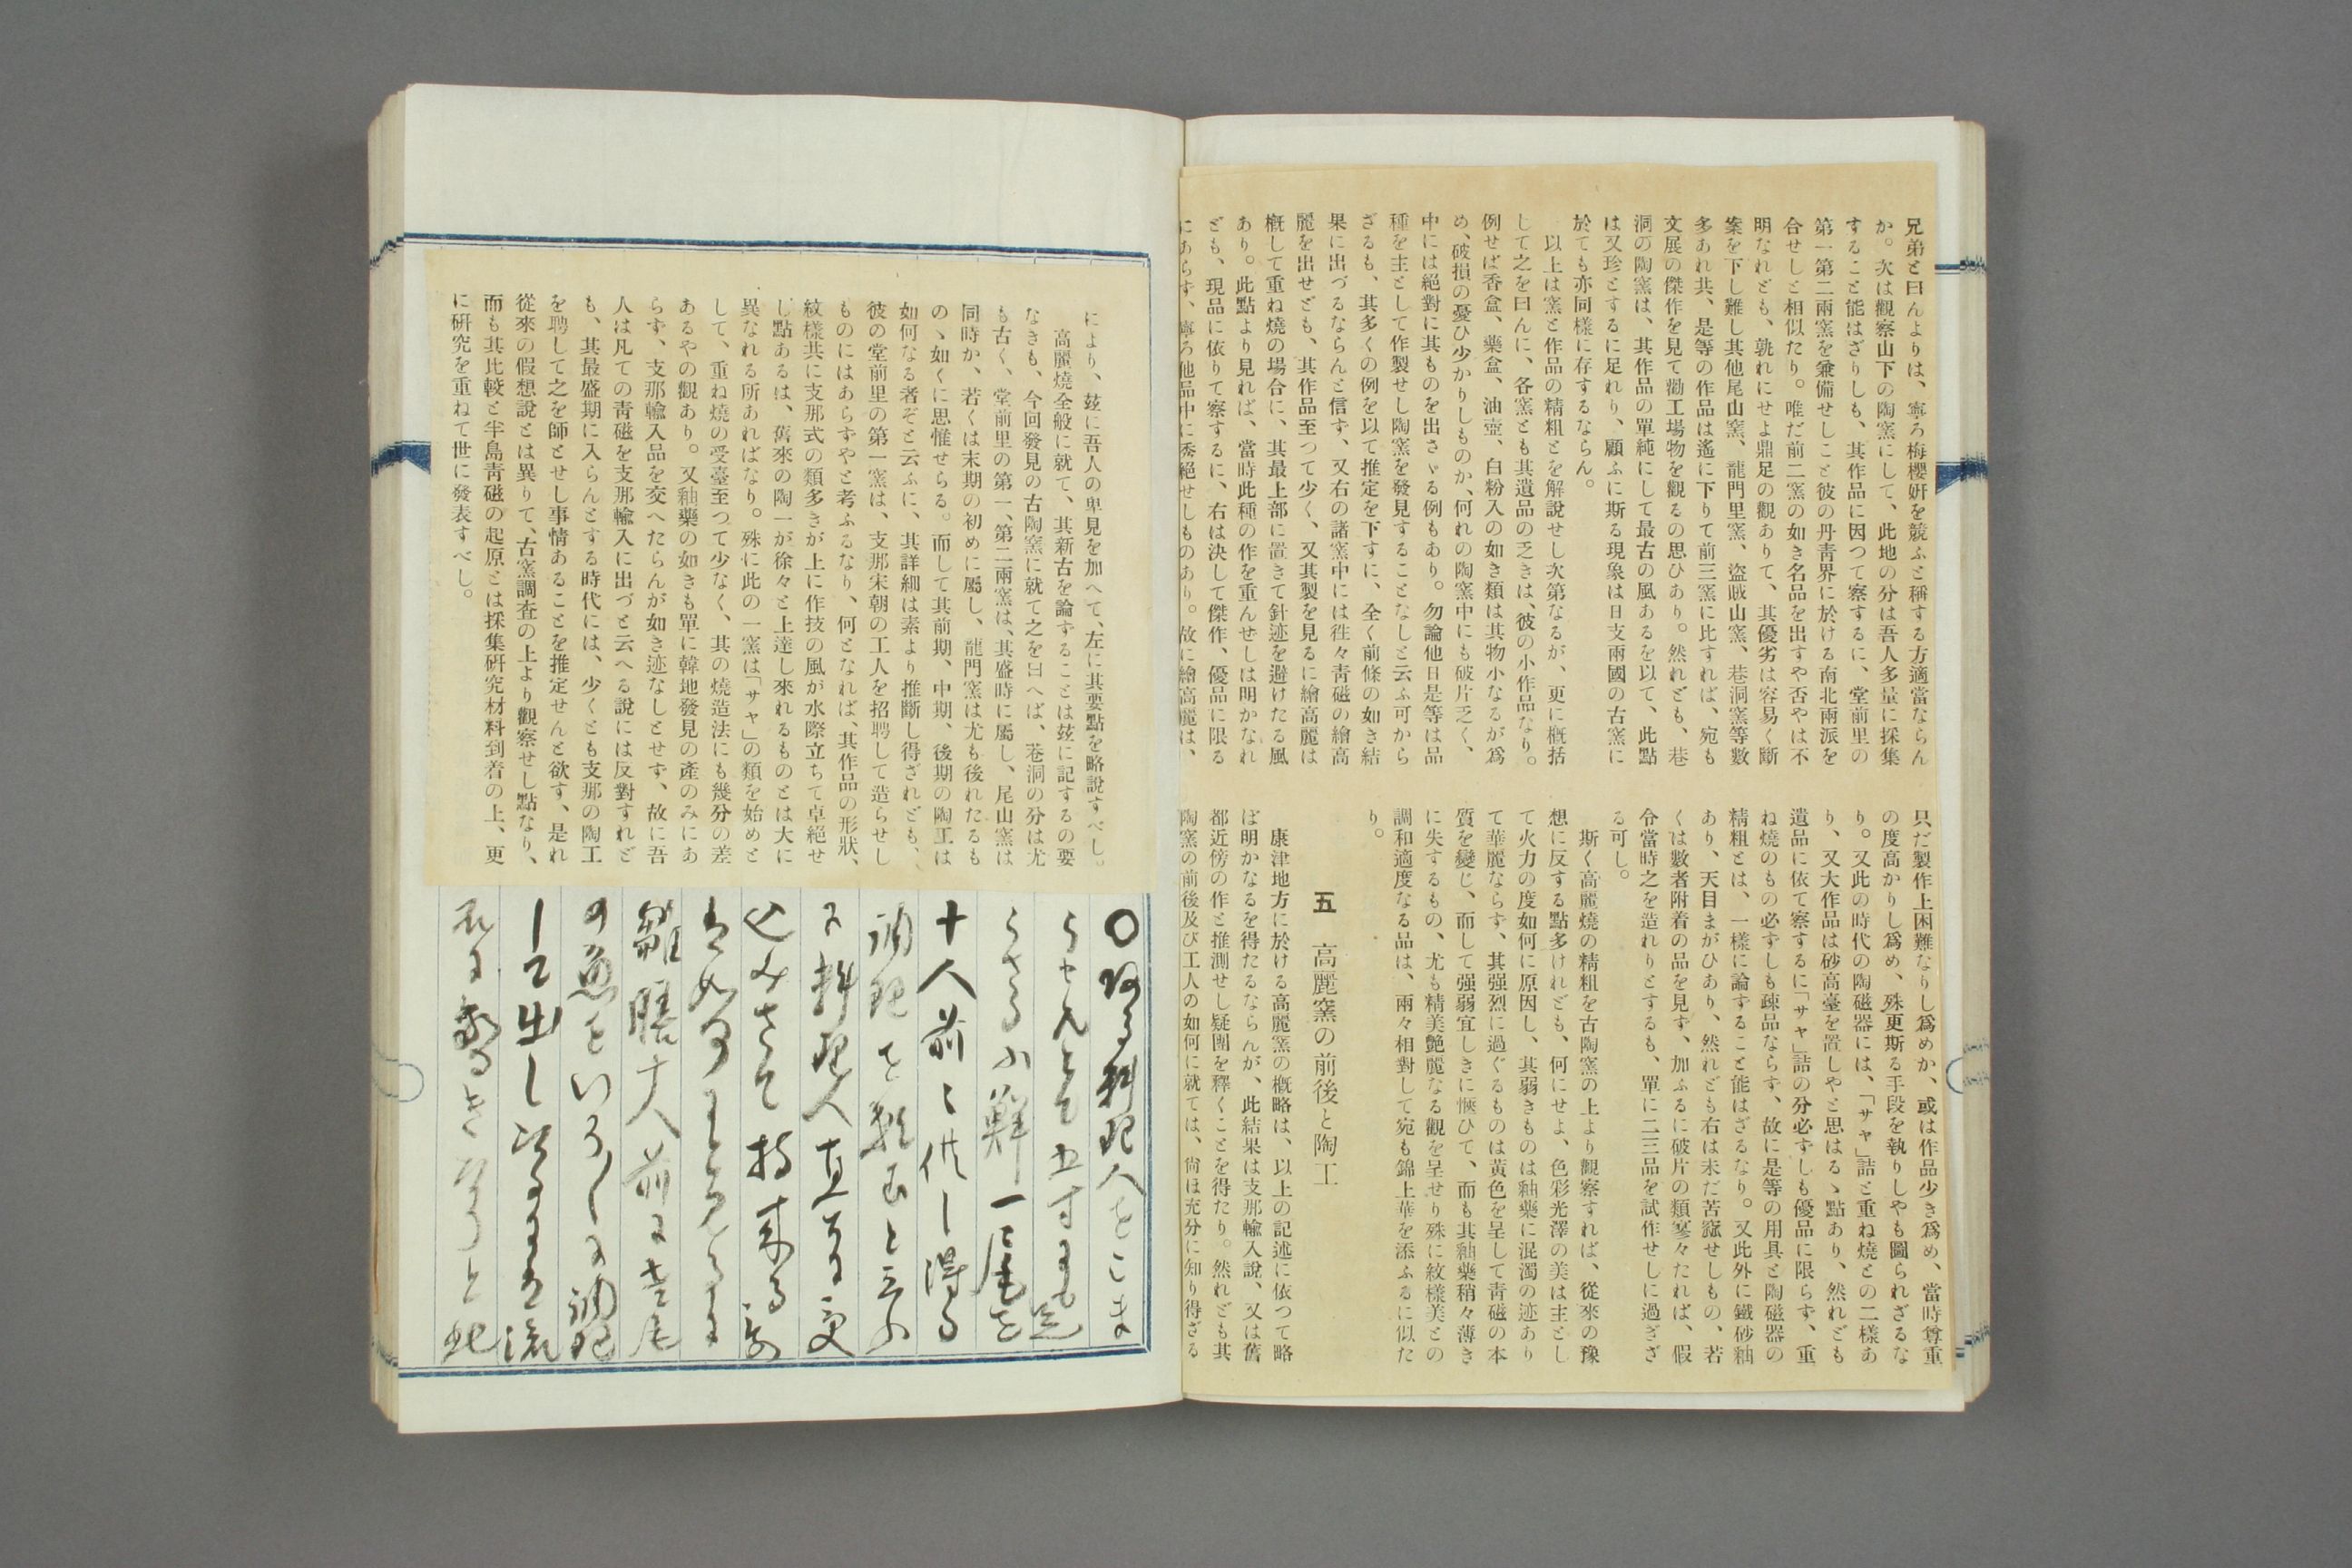 兄弟と曰んよりは、寧ろ梅櫻姸を競ふと稱する方適當ならん
か。次は觀察山下の陶窯にして、此地の分は吾人多量に採集
すること能はざりしも、其作品に因つて察するに、堂前里の
第一第二兩窯を兼備せしこと彼の丹靑界に於ける南北兩派を
合せしと相似たり。唯だ前二窯の如き名品を出すや否やは不
明なれども、孰れにせよ鼎足の觀ありて、其優劣は容易く斷
案を下し難し其他尾山窯、龍門里窯、盜賊山窯、巷洞窯等數
多あれ共、是等の作品は遙に下りて前三窯に比すれば、宛も
文展の傑作を見て勸工場物を觀るの思ひあり。然れども、巷
洞の陶窯は、其作品の單純にして最古の風あるを以て、此點
は又珍とするに足れり、顧ふに斯る現象は日支兩國の古窯に
於ても亦同樣に存するならん。
以上は窯と作品の精粗とを解說せし次第なるが、更に槪括
して之を曰んに、各窯とも其遺品の乏きは、彼の小作品なり。
例せば香盒、藥盒、油壺、白粉入の如き類は其物小なるが爲
め、破損の憂ひ少かりしものか、何れの陶窯中にも破片乏く、
中には絕對に其ものを出さゞる例もあり。勿論他日是等は品
種を主として作製せし陶窯を發見することなしと云ふ可から
ざるも、其多くの例を以て推定を下すに、全く前條の如き結
果に出づるならんと信ず、又右の諸窯中には徃々靑磁の繪高
麗を出せども、其作品至つて少く、又其製を見るに繪高麗は
槪して重ね燒の場合に、其最上部に置きて針迹を避けたる風
あり。此點より見れば、當時此種の作を重んせしは明かなれ
ども、現品に依りて察するに、右は決して傑作、優品に限る
にあらず、寧ろ他品中に秀絕せしものあり。故に繪高麗は、
只だ製作上困難なりし爲めか、或は作品少き爲め、當時尊重
の度高かりし爲め、殊更斯る手段を執りしやも圖られざるな
り。又此の時代の陶磁器には、「サヤ」詰と重ね燒との二樣あ
り、又大作品は砂高臺を置しやと思はるゝ點あり、然れども
遺品に依て察するに「サヤ」詰の分必ずしも優品に限らず、重
ね燒のもの必ずしも疎品ならず、故に是等の用具と陶磁器の
精粗とは、一樣に論ずること能はざるなり。又此外に鐵砂釉
あり、天目まがひあり、然れども右は未だ苦窳せしもの、若
くは數者附着の品を見ず、加ふるに破片の類寥々たれば、假
令當時之を造れりとするも、單に二三品を試作せしに過ぎざ
る可し。
斯く高麗燒の精粗を古陶窯の上より觀察すれば、從來の豫
想に反する點多けれども、何にせよ、色彩光澤の美は主とし
て火力の度如何に原因し、其弱きものは釉藥に混濁の迹あり
て華麗ならず、其强烈に過ぐるものは黃色を呈して靑磁の本
質を變じ、而して强弱宜しきに愜ひて、而も其釉藥稍々薄き
に失するもの、尤も精美艶麗なる觀を呈せり殊に紋樣美との
調和適度なる品は、兩々相對して宛も錦上華を添ふるに似た
り。
五 高麗窯の前後と陶工
康津地方に於ける高麗窯の槪略は、以上の記述に依つて略
ぼ明かなるを得たるならんが、此結果は支那輸入說、又は舊
都近傍の作と推測せし疑團を釋くことを得たり。然れども其
陶窯の前後及び工人の如何に就ては、尙ほ充分に知り得ざる
により、玆に吾人の卑見を加へて、左に其要點を略說すべし。
高麗燒全般に就て、其新古を論ずることは玆に記するの要
なきも、今回發見の古陶窯に就て之を曰へば、巷洞の分は尤
も古く、堂前里の第一、第二兩窯は、其盛時に屬し、尾山窯は
同時か、若くは末期の初めに屬し、龍門窯は尤も後れたるも
のゝ如くに思惟せらる。而して其前期、中期、後期の陶工は
如何なる者ぞと云ふに、其詳細は素より推斷し得ざれども、
彼の堂前里の第一窯は、支那宋朝の工人を招聘して造らせし
ものにはあらずやと考ふるなり、何となれば、其作品の形狀、
紋樣共に支那式の類多きが上に作技の風が水際立ちて卓絕せ
し點あるは、舊來の陶工が徐々と上達し來れるものとは大に
異なれる所あればなり。殊に此の一窯は「サヤ」の類を始めと
して、重ね燒の受臺至つて少なく、其の燒造法にも幾分の差
あるやの觀あり。又釉藥の如きも單に韓地發見の產のみにあ
らず、支那輸入品を交へたらんが如き迹なしとせず、故に吾
人は凡ての靑磁を支那輸入に出づと云へる說には反對すれど
も、其最盛期に入らんとする時代には、少くとも支那の陶工
を聘して之を師とせし事情あることを推定せんと欲す、是れ
從來の假想說とは異りて、古窯調査の上より觀察せし點なり、
而も其比較と半島靑磁の起原とは採集硏究材料到着の上、更
に硏究を重ねて世に發表すべし。
〇或る料理人をこま
らせんとて五寸にも足
らさる小鮮一尾を
十人前に供し得る
調理を頼むと云ふ
に料理人直に
込みさて持来る
雛膳十人前に
の魚をいろ〱に調理
して出し